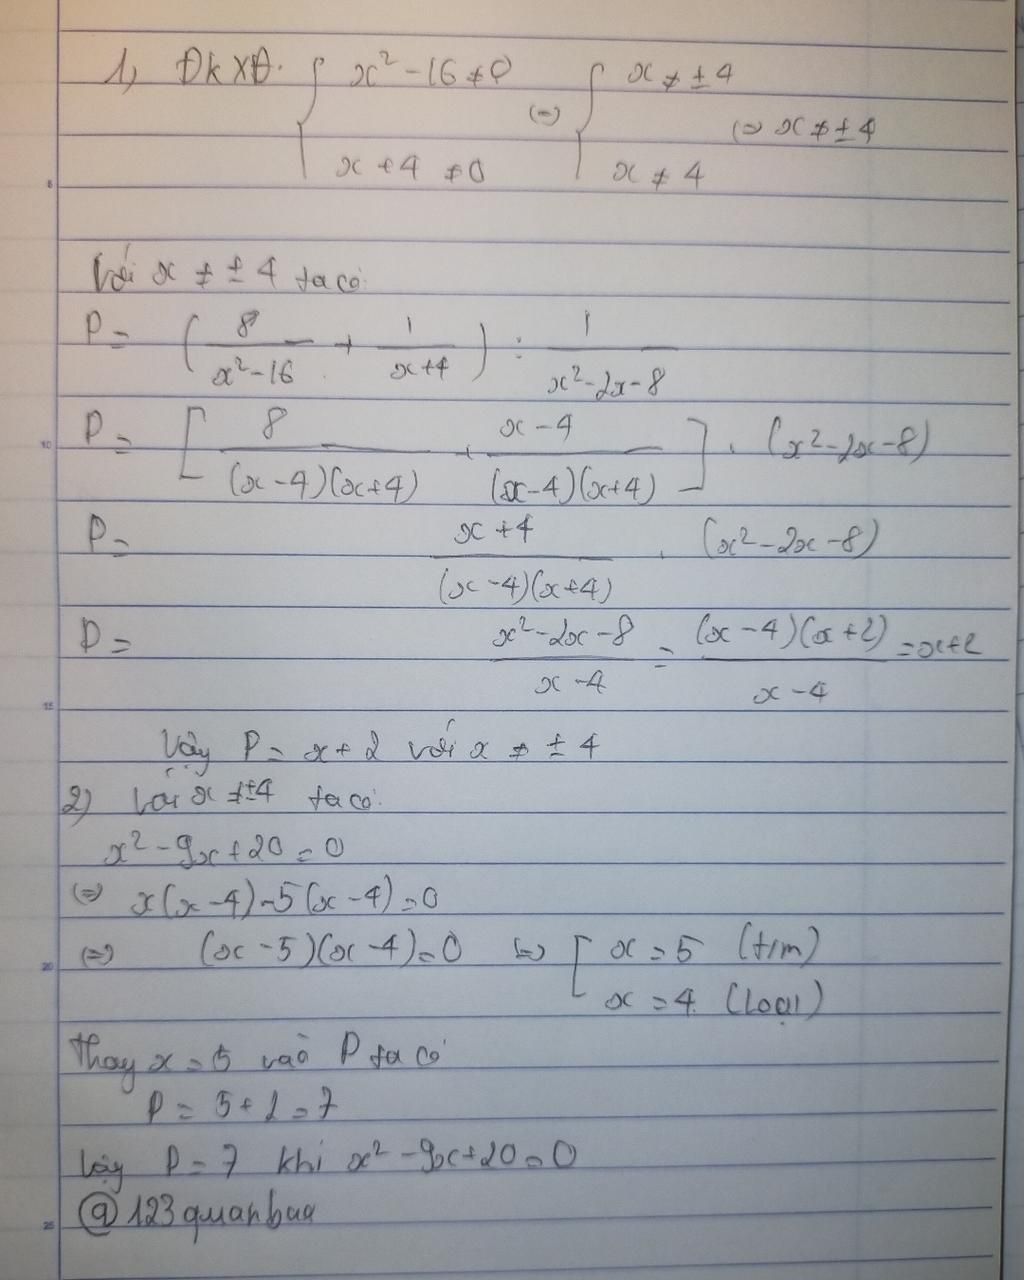 1, ĐKXĐ. { x² - 16 ≠ 0 (=) { x ≠ ± 4 (=) x ≠ ± 4
x + 4 ≠ 0 x ≠ 4
Với x ≠ ± 4 ta có:
P = ( 8/(x² - 16) + 1/(x+4) ) : 1/(x² - 2x - 8)
P = [ 8/((x - 4)(x+4)) + (x - 4)/((x - 4)(x+4)) ] . (x² - 2x - 8)
P = (x + 4)/((x - 4)(x+4)) . (x² - 2x - 8)
P = (x² - 2x - 8)/(x - 4) = ((x - 4)(x+2))/(x - 4) = x+2
Vậy P = x + 2 với x ≠ ± 4
2) Với x ≠ ±4 ta có:
x² - 9x + 20 = 0
(=) x(x - 4) - 5(x - 4) = 0
(=) (x - 5)(x - 4) = 0 (=) [ x = 5 (t/m)
x = 4 (loại)
Thay x = 5 vào P ta có
P = 5 + 2 = 7
Vậy P = 7 khi x² - 9x + 20 = 0
@123quanbua
5
10
15
20
25